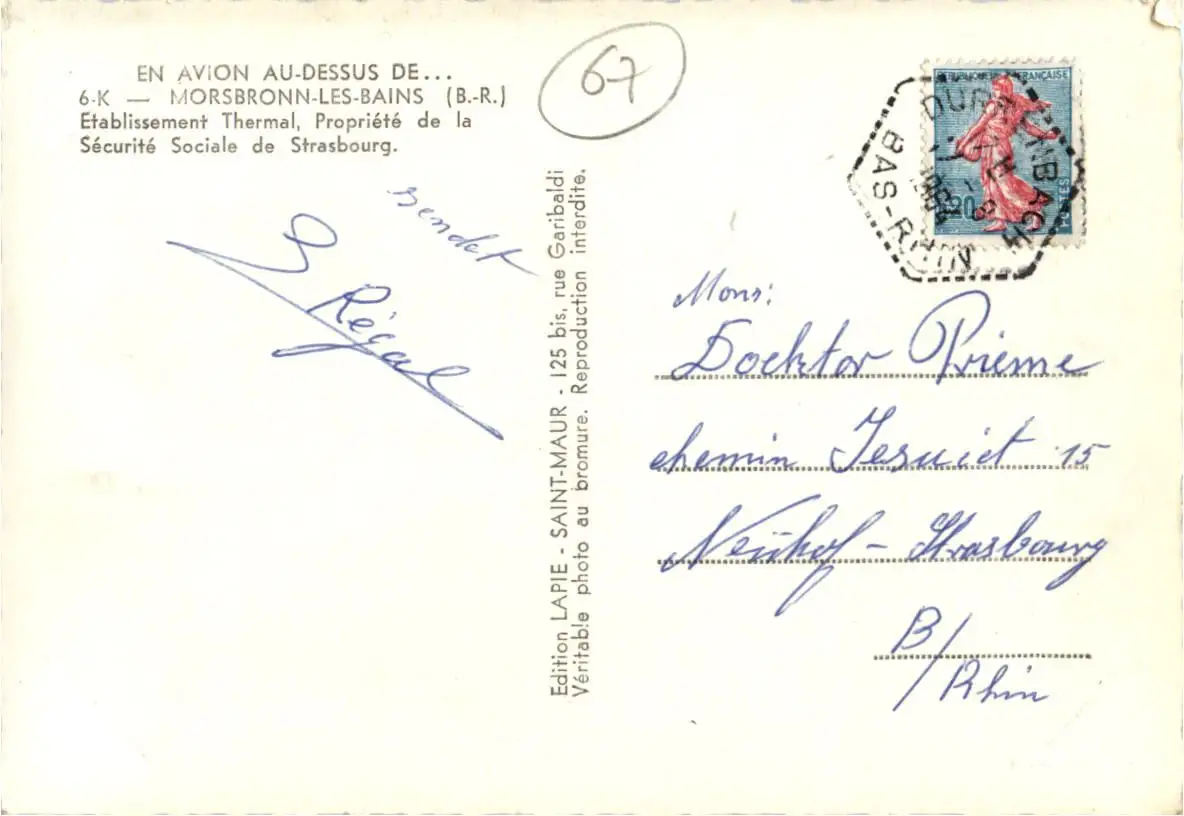 EN AVION AU-DESSUS DE...
6-K — MORSBRONN-LES-BAINS (B.-R.)
Etablissement Thermal, Propriété de la
Sécurité Sociale de Strasbourg.
67
sendet
Régal
Edition LAPIE - SAINT-MAUR - 125 bis, rue Garibaldi
Véritable photo au bromure. Reproduction interdite.
REPUBLIQUE FRANÇAISE
0,20
POSTES
BAS-RHIN
Mons:
Docktor Prieme
chemin Jesuiet 15
Neühof - Strasbourg
B/
Rhin